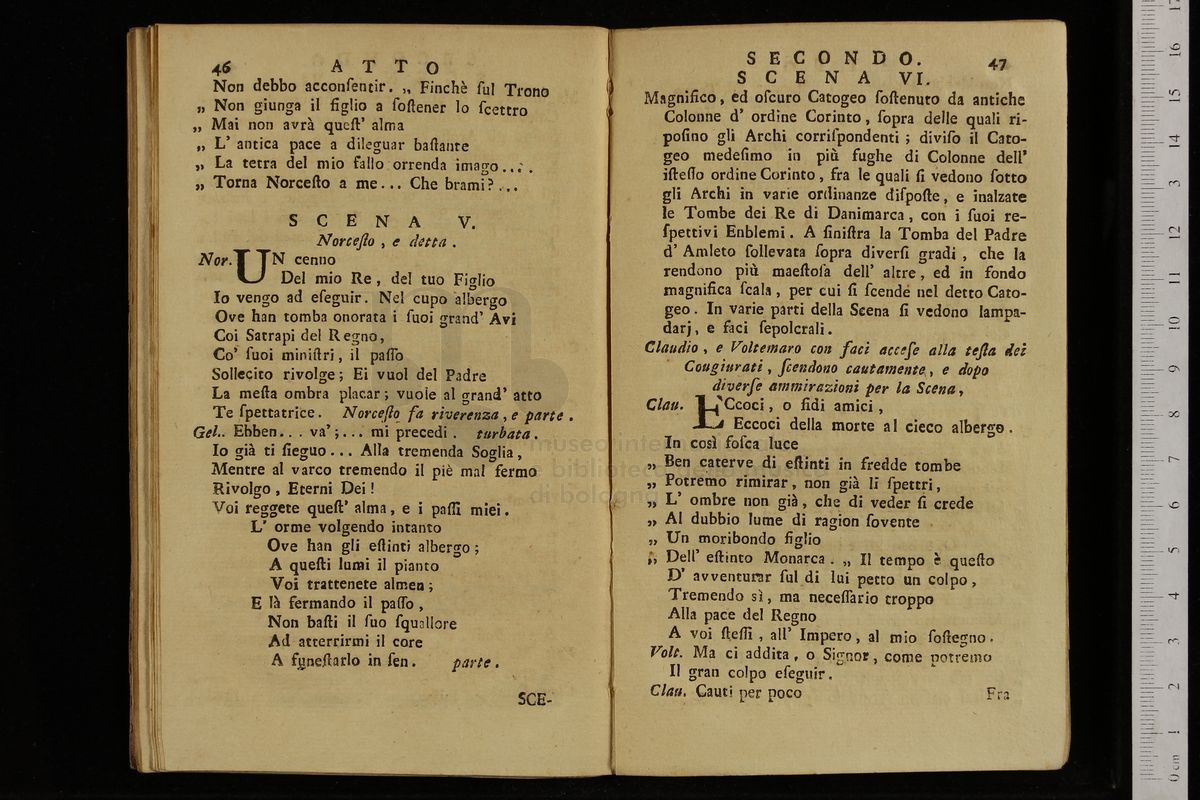 46 A T T O
Non debbo acconſentir. „ Finchè ſul Trono
„ Non giunga il figlio a ſoſtener lo ſcettro
„ Mai non avrà queſt' alma
„ L' antica pace a dileguar baſtante
„ La tetra del mio fallo orrenda imago...
„ Torna Norceſto a me... Che brami?...
S C E N A V.
Norceſto, e detta.
Nor. UN cenno
Del mio Re, del tuo Figlio
Io vengo ad eſeguir. Nel cupo albergo
Ove han tomba onorata i ſuoi grand' Avi
Coi Satrapi del Regno,
Co' ſuoi miniſtri, il paſſo
Sollecito rivolge; Ei vuol del Padre
La meſta ombra placar; vuole al grand' atto
Te ſpettatrice. Norceſto fa riverenza, e parte.
Gel.. Ebben... va';... mi precedi. turbata.
Io già ti ſieguo... Alla tremenda Soglia,
Mentre al varco tremendo il piè mal fermo
Rivolgo, Eterni Dei!
Voi reggete queſt' alma, e i paſſi miei.
L' orme volgendo intanto
Ove han gli eſtinti albergo;
A queſti lumi il pianto
Voi trattenete almen;
E là fermando il paſſo,
Non baſti il ſuo ſquallore
Ad atterrirmi il core
A funeſtarlo in ſen. parte.
SCE-
S E C O N D O. 47
S C E N A VI.
Magnifico, ed oſcuro Catogeo ſoſtenuto da antiche
Colonne d' ordine Corinto, ſopra delle quali ri-
poſino gli Archi corriſpondenti; diviſo il Cato-
geo medeſimo in più fughe di Colonne dell'
iſteſſo ordine Corinto, fra le quali ſi vedono ſotto
gli Archi in varie ordinanze diſpoſte, e inalzate
le Tombe dei Re di Danimarca, con i ſuoi re-
ſpettivi Enblemi. A ſiniſtra la Tomba del Padre
d' Amleto ſollevata ſopra diverſi gradi, che la
rendono più maeſtoſa dell' altre, ed in fondo
magnifica ſcala, per cui ſi ſcende nel detto Cato-
geo. In varie parti della Scena ſi vedono lampa-
darj, e faci ſepolcrali.
Claudio, e Voltemaro con faci acceſe alla teſta dei
Cougiurati, ſcendono cautamente, e dopo
diverſe ammirazioni per la Scena,
Clau. ECcoci, o fidi amici,
Eccoci della morte al cieco albergo.
In così foſca luce
„ Ben caterve di eſtinti in fredde tombe
„ Potremo rimirar, non già li ſpettri,
„ L' ombre non già, che di veder ſi crede
„ Al dubbio lume di ragion ſovente
„ Un moribondo figlio
„ Dell' eſtinto Monarca. „ Il tempo è queſto
D' avventurar ſul di lui petto un colpo,
Tremendo sì, ma neceſſario troppo
Alla pace del Regno
A voi ſteſſi, all' Impero, al mio ſoſtegno.
Volt. Ma ci addita, o Signor, come potremo
Il gran colpo eſeguir.
Clau. Cauti per poco
Fra